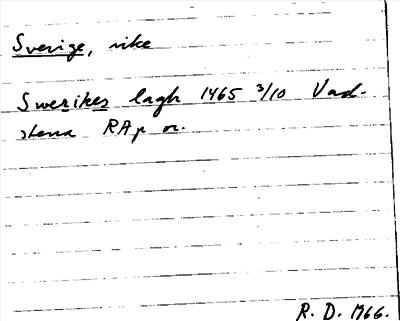 Sverige, rike
Swerikes lagh 1465 3/10 Vad-
stena RAp or.
R. D. 1966.